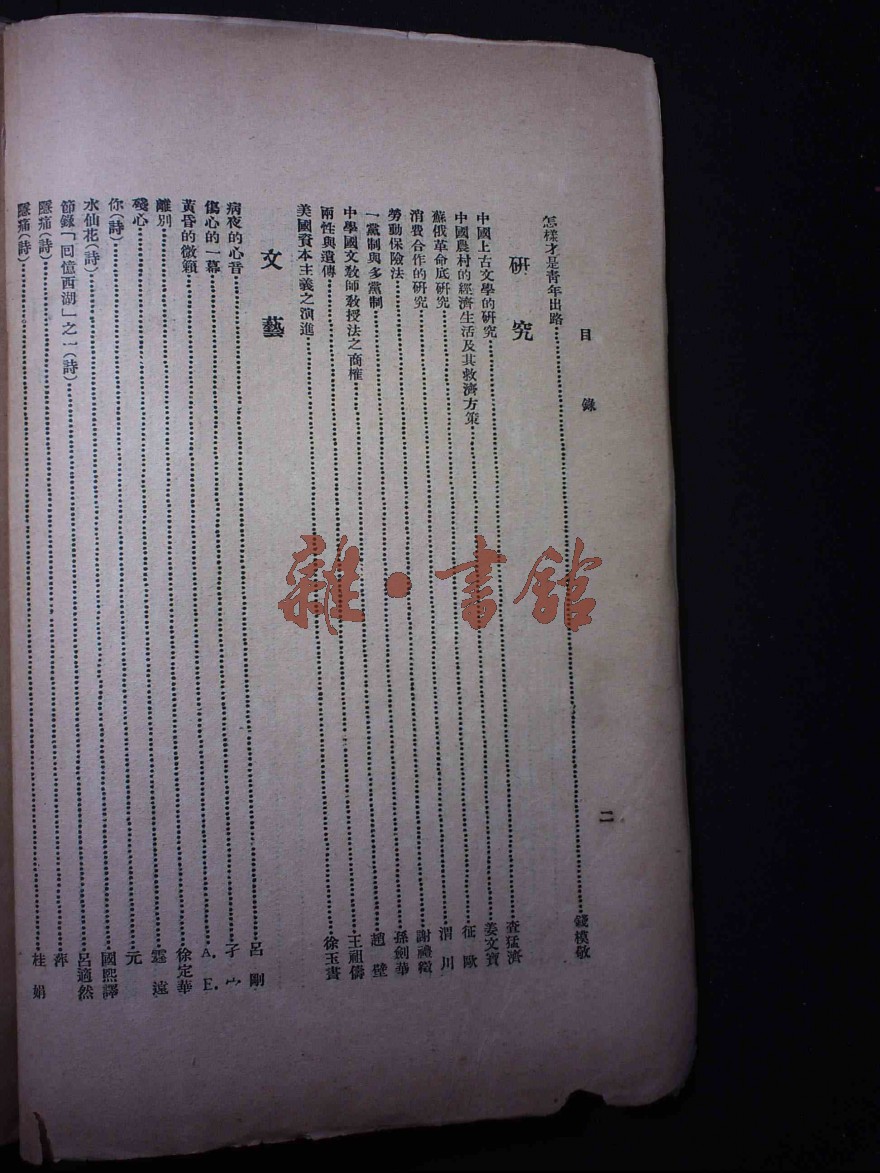 目錄
二
怎樣才是靑年出路……錢模敬
研究
中國上古文學的研究……查猛濟
中國農村的經濟生活及其救濟方策……姜文寶
蘇俄革命底研究……征歐
消費合作的研究……渭川
勞動保險法……謝禮
一黨制與多黨制……孫劍華
中學國文敎師敎授法之商榷……趙壁
兩性與遺傳……王祖儔
美國資本主義之演進……徐玉書
文藝
病夜的心音……呂剛
傷心的一幕……
黃昏的微籟……A. E.
離別……徐定華
殘心……遠
你(詩)……元
水仙花(詩)……國熙譯
節錄「回憶西湖」之一(詩)……呂適然
隱痛(詩)……萍
隱痛(詩)……桂娟
雜·書館